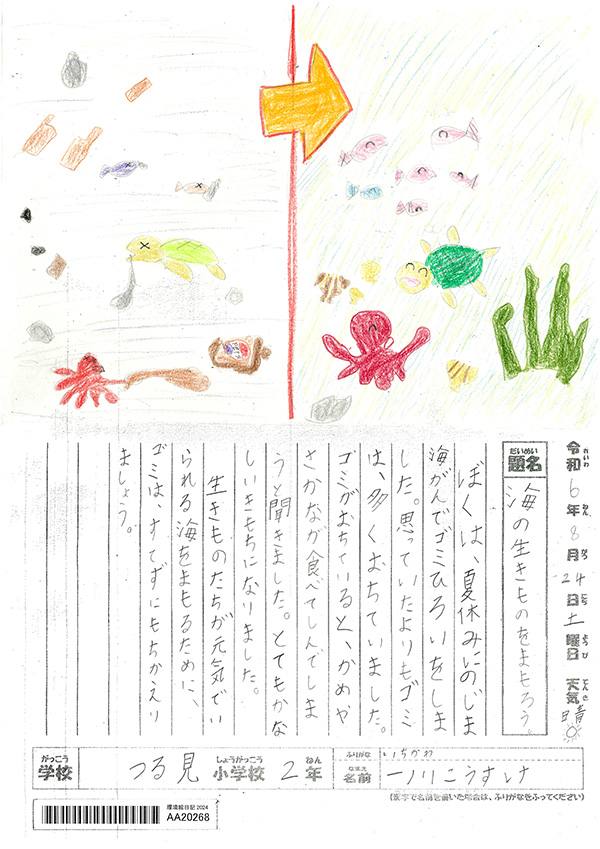 令和6年8月24日土曜日 天気 晴
れいわ ねん がつ にち ようび てんき
だいめい
題名 海の生きものをまもろう。
ぼくは、夏休みにのじま
海がんでゴミひろいをしま
した。思っていたよりもゴミ
は、多くおちていました。
ゴミがおちていると、かめや
さかなが食べてしんでしま
うと聞きました。とてもかな
しいきもちになりました。
生きものたちが元気でい
られる海をまもるために、
ゴミは、すてずにもちかえり
ましょう。
がっこう しょうがっこう ねん
学校 つる見 小学校 2年
ふりがな いちかわ
なまえ
名前 一川こうすけ
(漢字で名前を書いた場合は、ふりがなをふってください)
環境絵日記 2024
AA20268